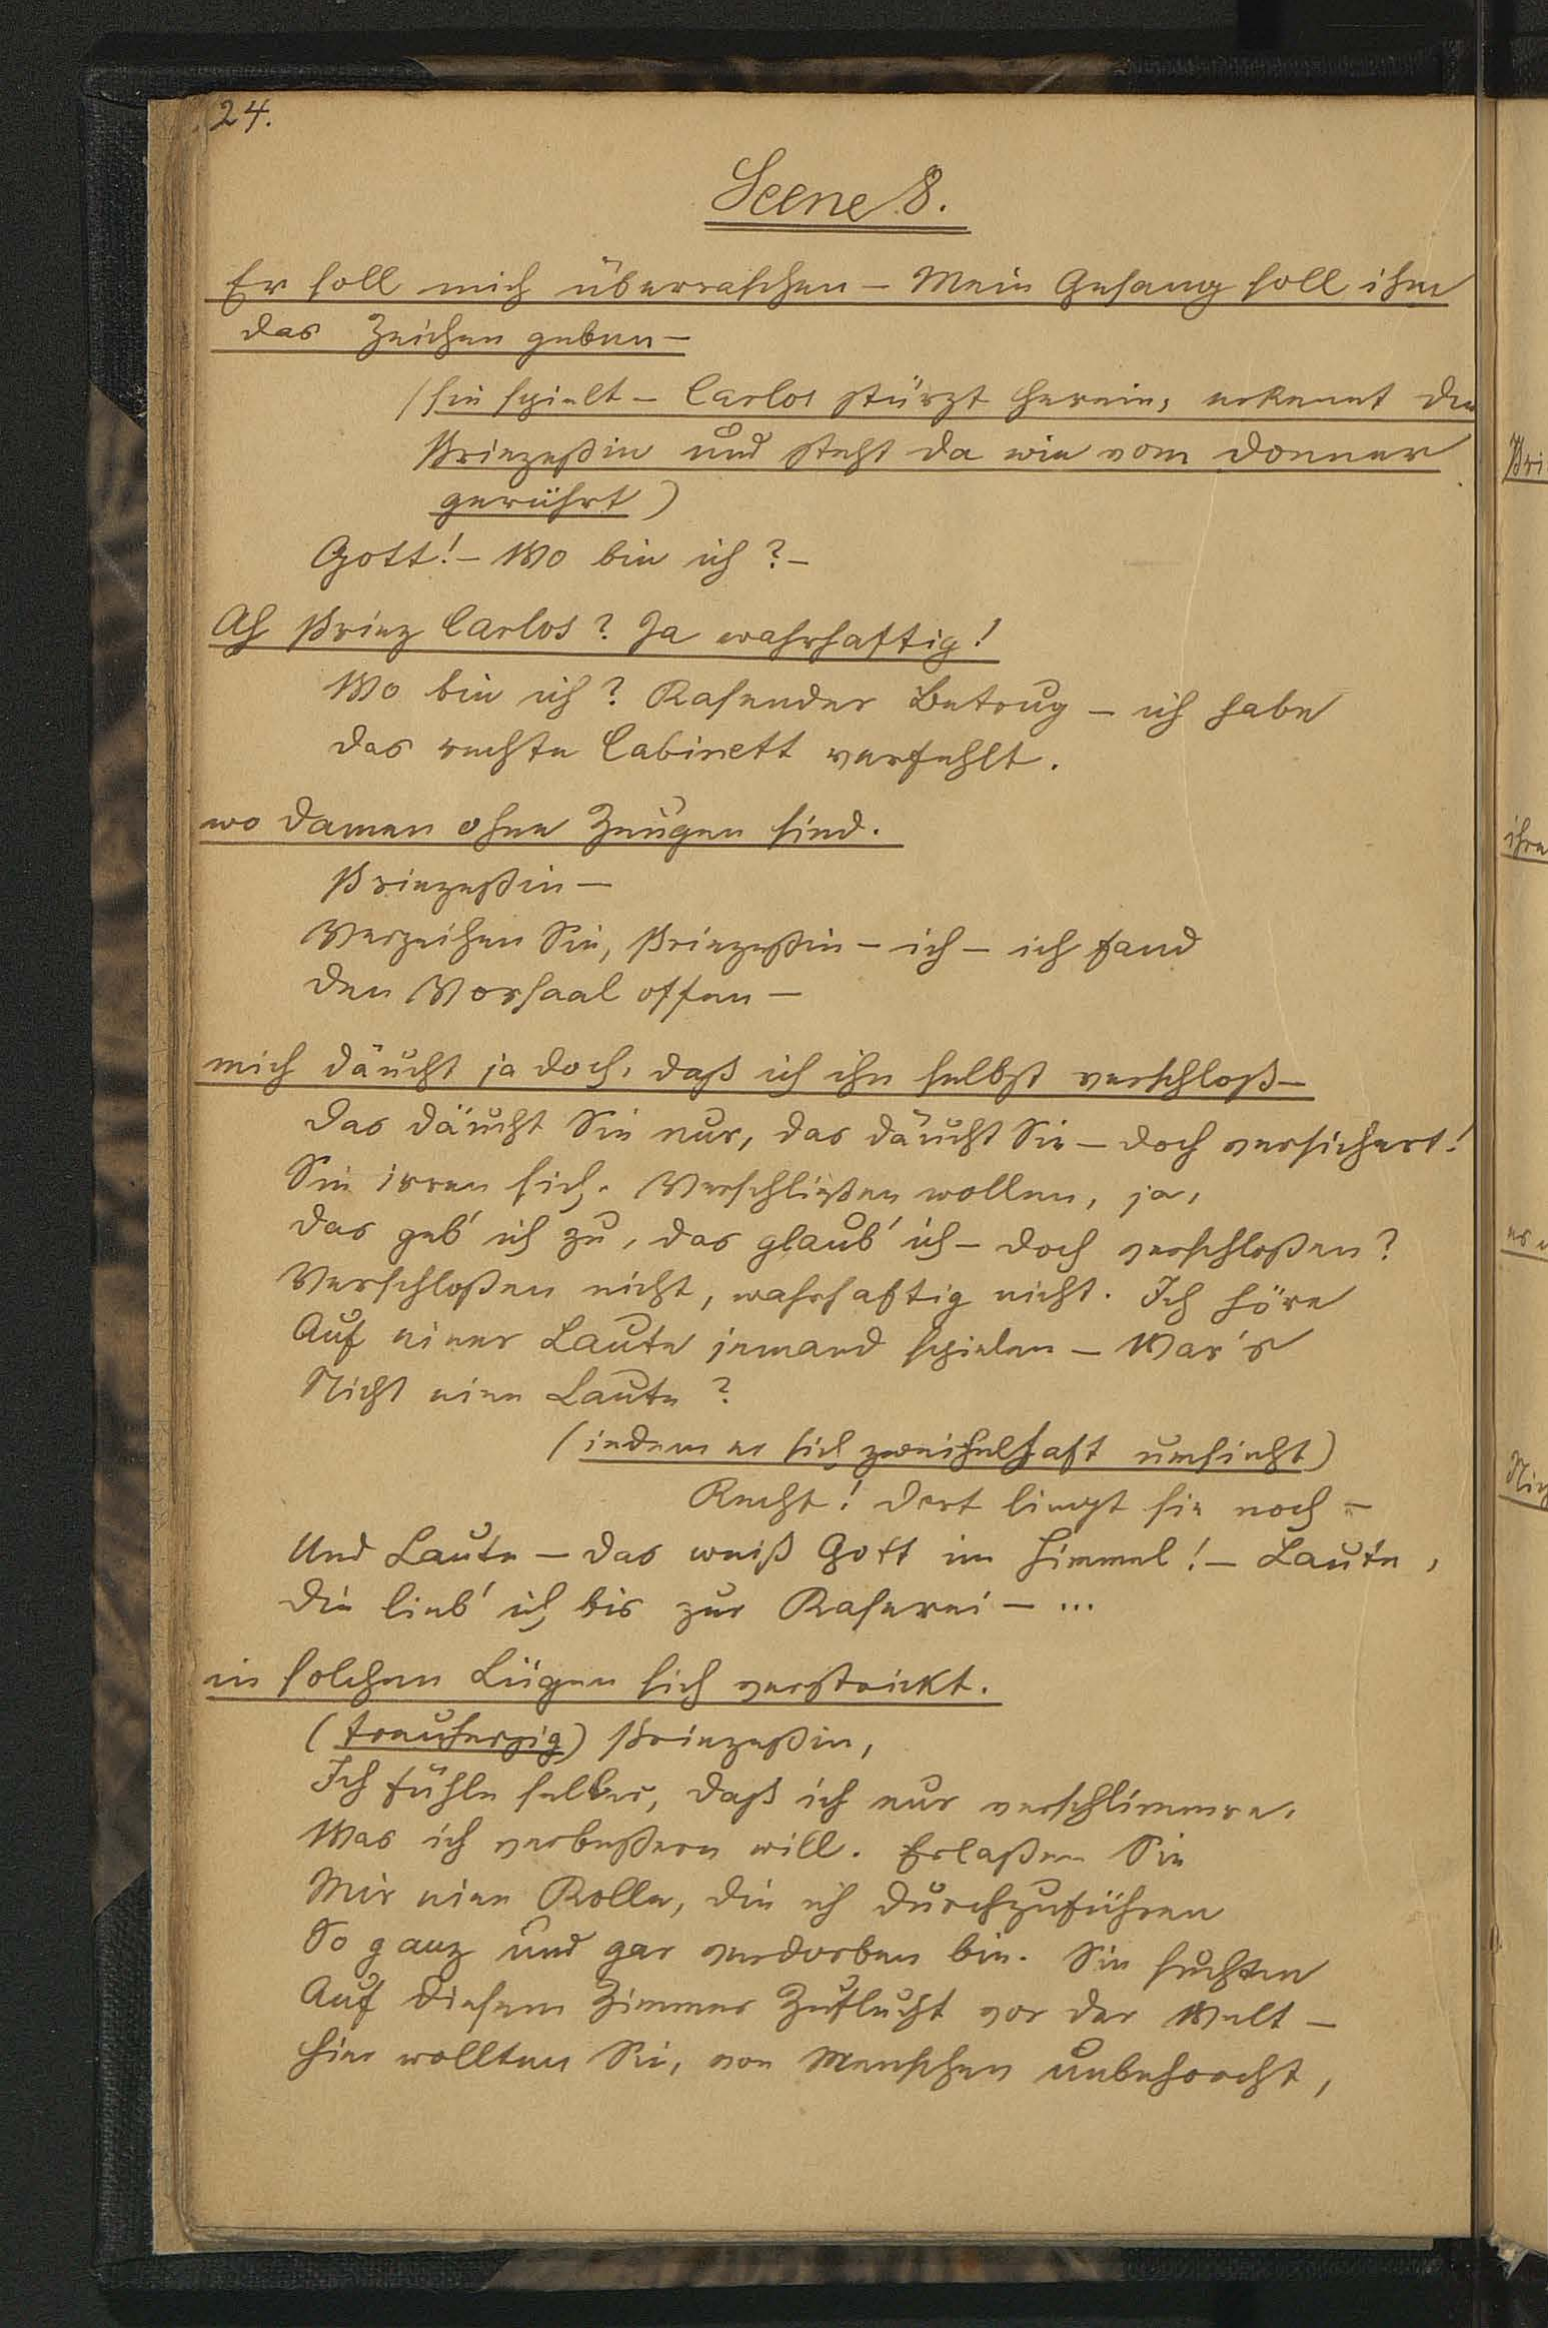 24.
Scene 8.
Er soll mich überraschen – Mein Gesang soll ihm
das Zeichen geben –
(sie spielt – Carlos stürzt herein, erkennt die
Prinzeßin und steht da wie vom Donner
gerührt)
Gott! – Wo bin ich? –
Ah Prinz Carlos? Ja wahrhaftig!
Wo bin ich? Rasender Betrug – ich habe
das rechte Cabinett verfehlt.
wo Damen ohne Zeugen sind.
Prinzeßin –
Verzeihen Sie, Prinzeßin – ich – ich fand
den Vorsaal offen –
mich däucht ja doch, daß ich ihn selbst verschloß –
Das däucht Sie nur, das däucht Sie – doch versichert!
Sie irren sich. Verschließen wollen, ja,
das geb' ich zu, das glaub' ich – doch verschloßen?
Verschloßen nicht, wahrhaftig nicht. Ich höre
Auf einer Laute jemand spielen – War's
Nicht eine Laute?
(indem er sich zweifelhaft umsieht)
Recht! Dort liegt sie noch –
Und Laute – das weiß Gott im Himmel! – Laute,
die lieb' ich bis zur Raserei – ...
in solchen Lügen sich verstrickt.
(treuherzig) Prinzeßin,
Ich fühle selber, daß ich nur verschlimmre,
Was ich verbeßern will. Erlaßen Sie
Mir eine Rolle, die ich durchzuführen
So ganz und gar verdorben bin. Sie suchten
Auf diesem Zimmer Zuflucht vor der Welt –
Hier wollten Sie, von Menschen unbehorcht,
Pri
ihre
es